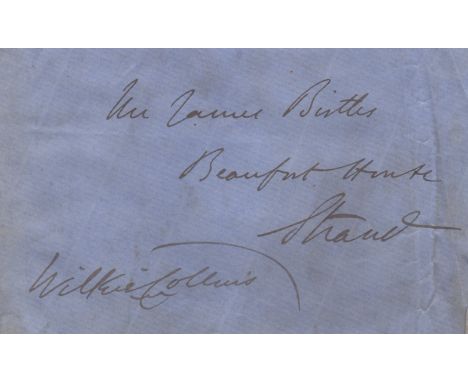 Mr James Birtles
Beaufort House
Strand
Wilkie Collins